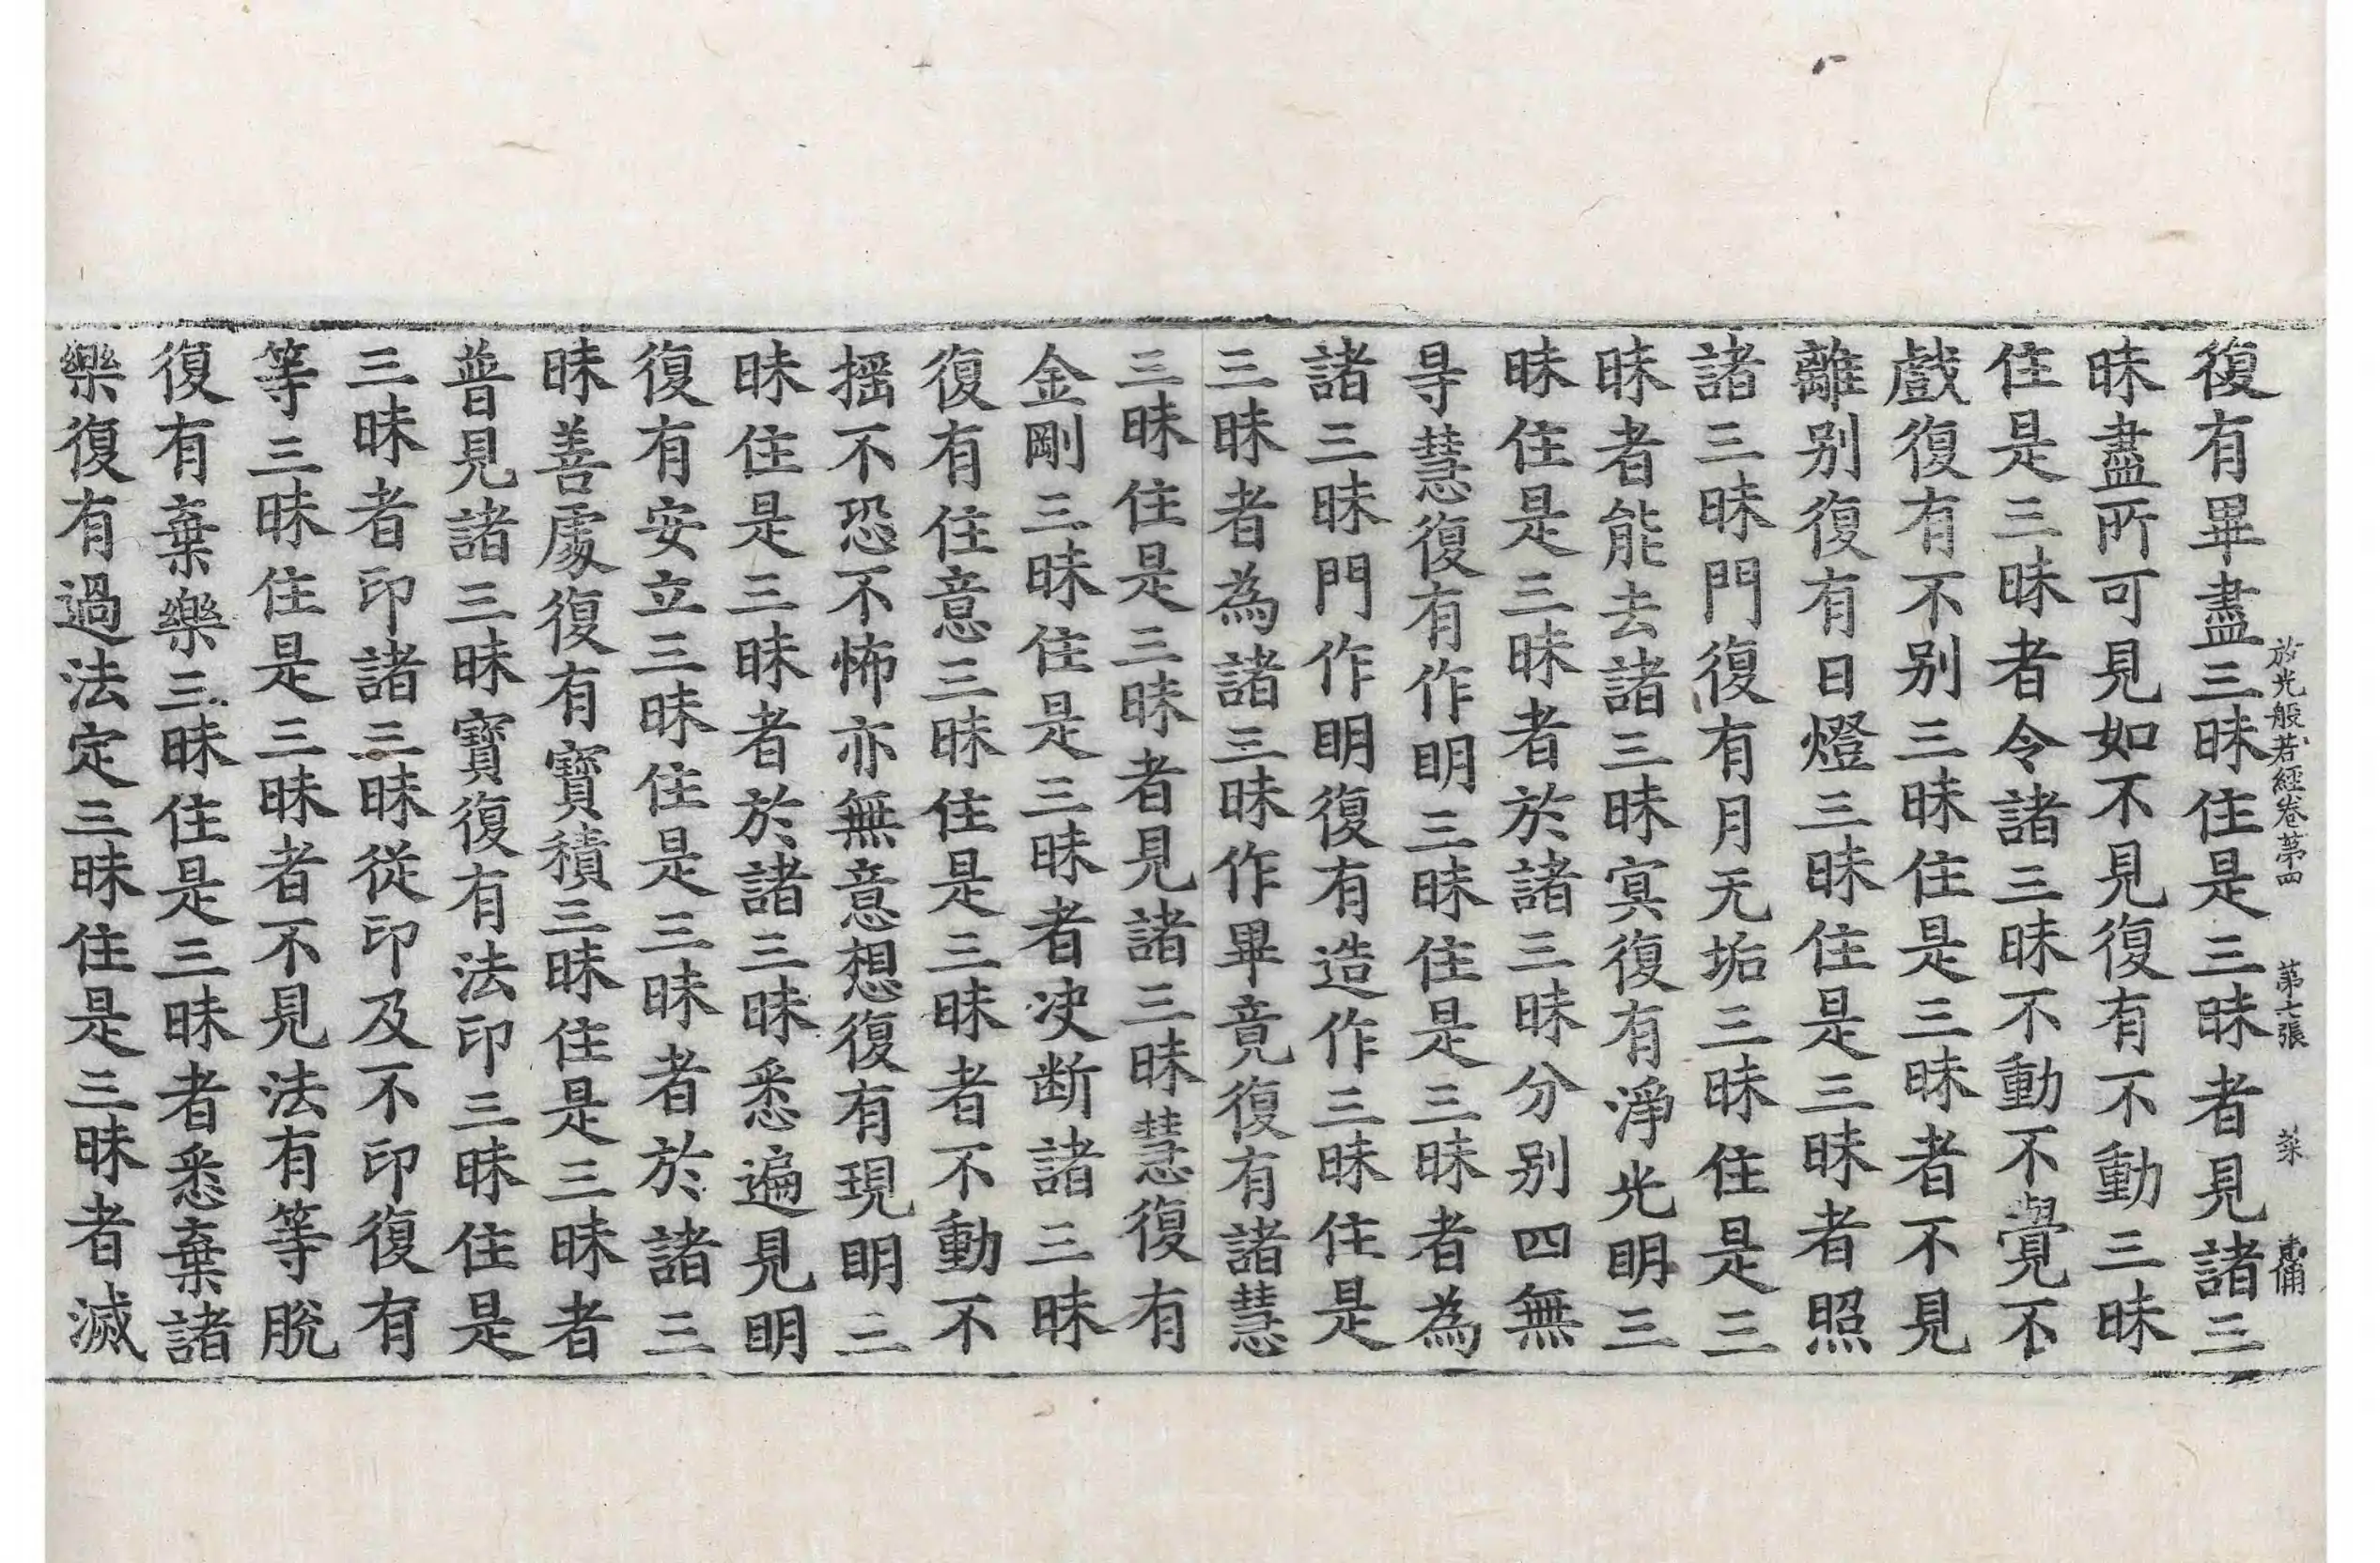 放光般若經卷第四 第七張 菜
復有畢盡三昧住是三昧者見諸三
昧盡所可見如不見復有不動三昧
住是三昧者令諸三昧不動不覺不
戲復有不别三昧住是三昧者不見
離别復有日燈三昧住是三昧者照
諸三昧門復有月无垢三昧住是三
昧者能去諸三昧冥復有淨光明三
昧住是三昧者於諸三昧分别四無
㝵慧復有作明三昧住是三昧者為
諸三昧門作明復有造作三昧住是
三昧者為諸三昧作畢竟復有諸慧
三昧住是三昧者見諸三昧慧復有
金剛三昧住是三昧者决断諸三昧
復有住意三昧住是三昧者不動不
揺不恐不怖亦無意想復有現明三
昧住是三昧者於諸三昧悉遍見明
復有安立三昧住是三昧者於諸三
昧善處復有寶積三昧住是三昧者
普見諸三昧寶復有法印三昧住是
三昧者印諸三昧從印及不印復有
等三昧住是三昧者不見法有等脫
復有棄樂三昧住是三昧者悉棄諸
樂復有過法定三昧住是三昧者滅